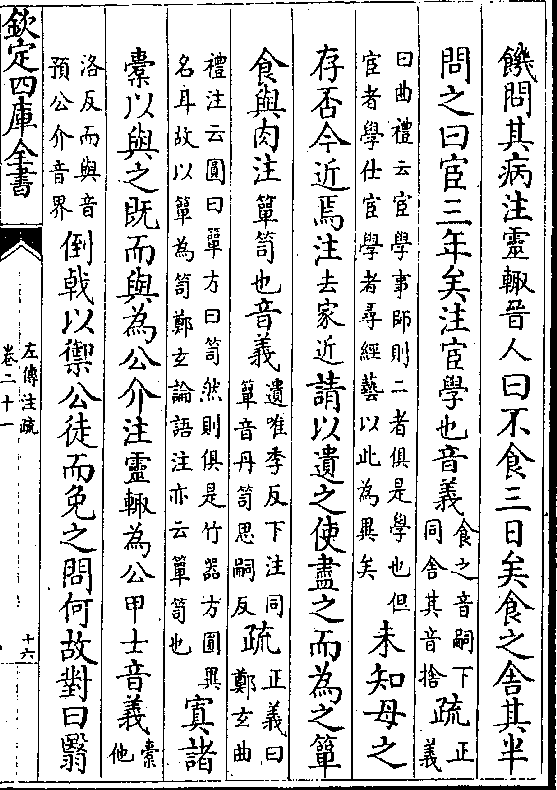 饑問其病注靈輒晉人曰不食三日矣食之舍其半
問之曰宦三年矣注宦學也音義食之音嗣下同舍其音捨疏正義
曰曲禮云宦學事師則二者俱是學也但宦者學仕宦學者尋經藝以此為異矣未知母之
存否今近焉注去家近請以遺之使盡之而為之簞
食與肉注簞笥也音義遺唯季反下注同簞音丹笥思嗣反疏正義曰鄭玄曲
禮注云圓曰簞方曰笥然則俱是竹器方圓異名耳故以簞為笥鄭玄論語注亦云簞笥也寘諸
橐以與之既而與為公介注靈輒為公甲士音義橐他
洛反而與音預公介音界倒戟以禦公徒而免之問何故對曰翳
欽定四庫全書
左傳注疏
卷二十一
十六